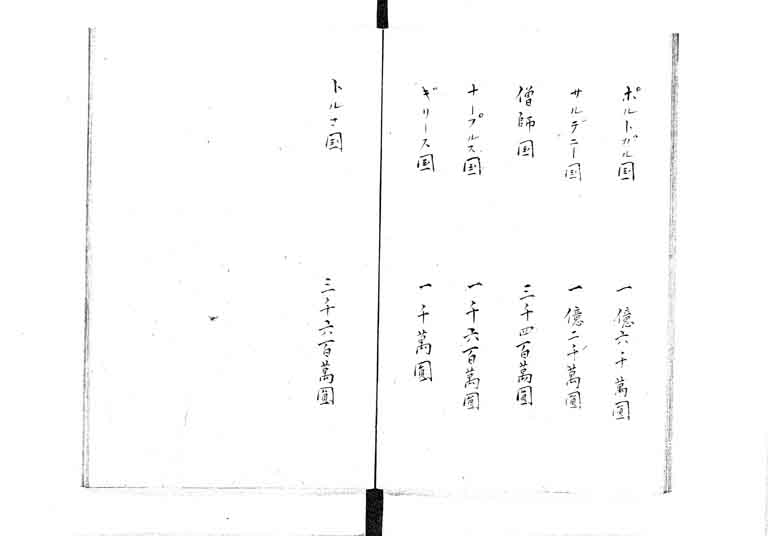 ポルトガル国 一億六千萬圓
サルデニー国 一億二千萬圓
僧師国 三千四百萬圓
ナープルス国 一千六百萬圓
ギリース国 一千萬圓
トルコ国 三千六百萬圓